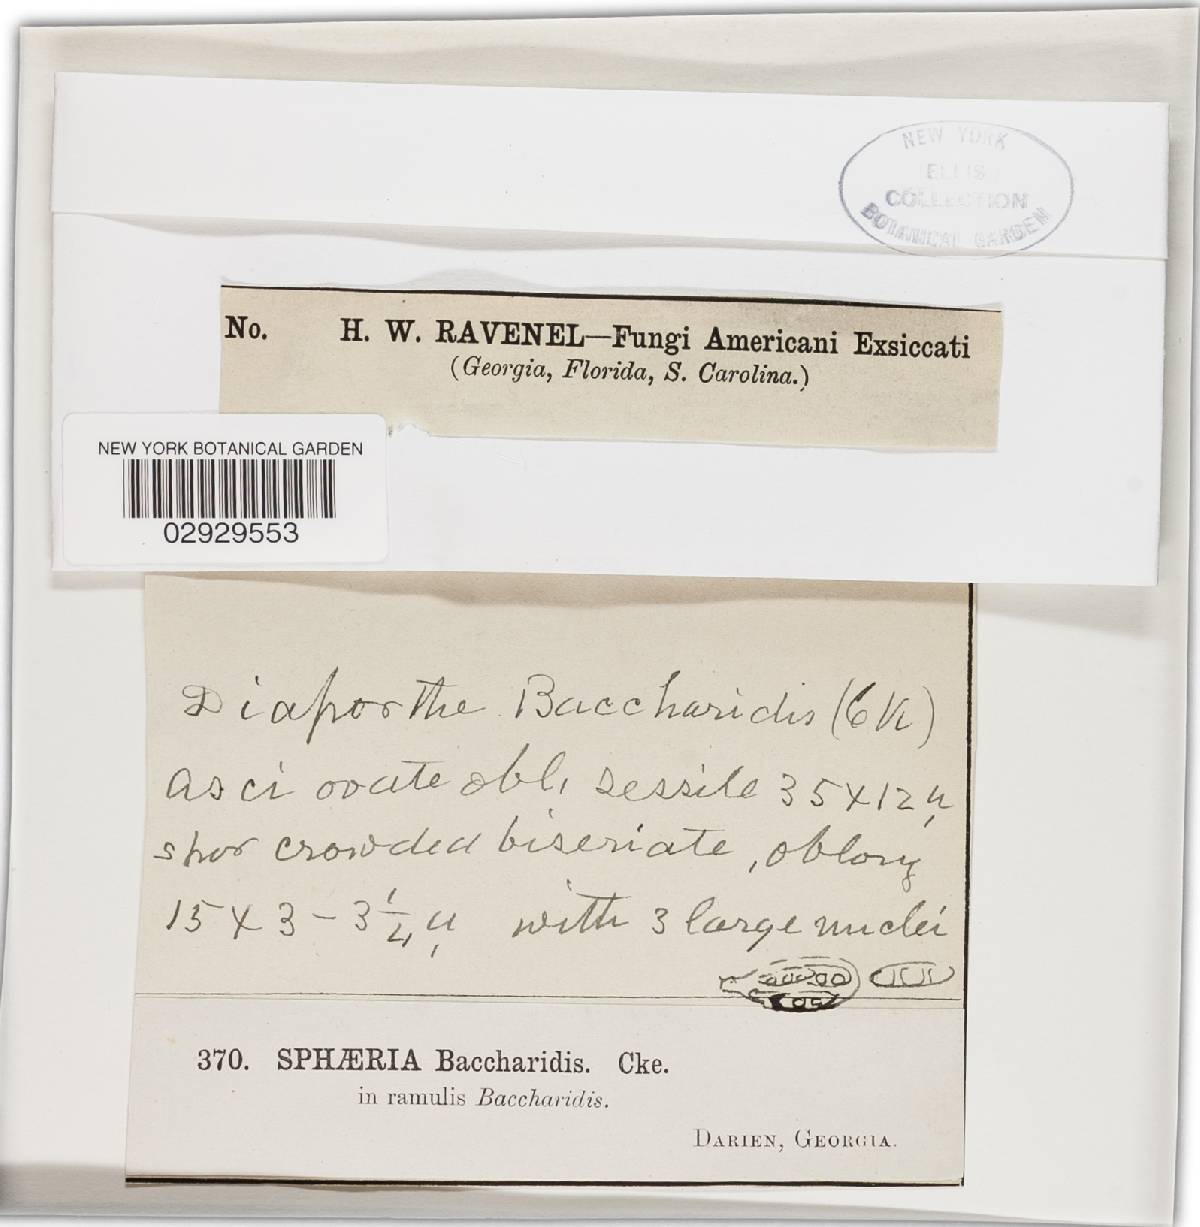 NEW YORK
ELLIS
COLLECTION
BOTANICAL GARDEN
No. H. W. RAVENEL—Fungi Americani Exsiccati
(Georgia, Florida, S. Carolina.)
NEW YORK BOTANICAL GARDEN
02929553
Diaporthe Baccharidis (CK)
asci ovate obl, sessile 35 x 12 µ,
spor crowded biseriate, oblong
15 x 3 – 3 1/4 µ, with 3 large nuclei
370. SPHÆRIA Baccharidis. Cke.
in ramulis Baccharidis.
DARIEN, GEORGIA.